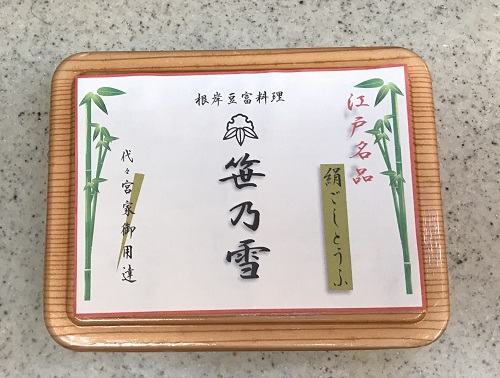 根岸豆富料理
江戸名品
絹ごしとうふ
笹乃雪
代々宮家御用達